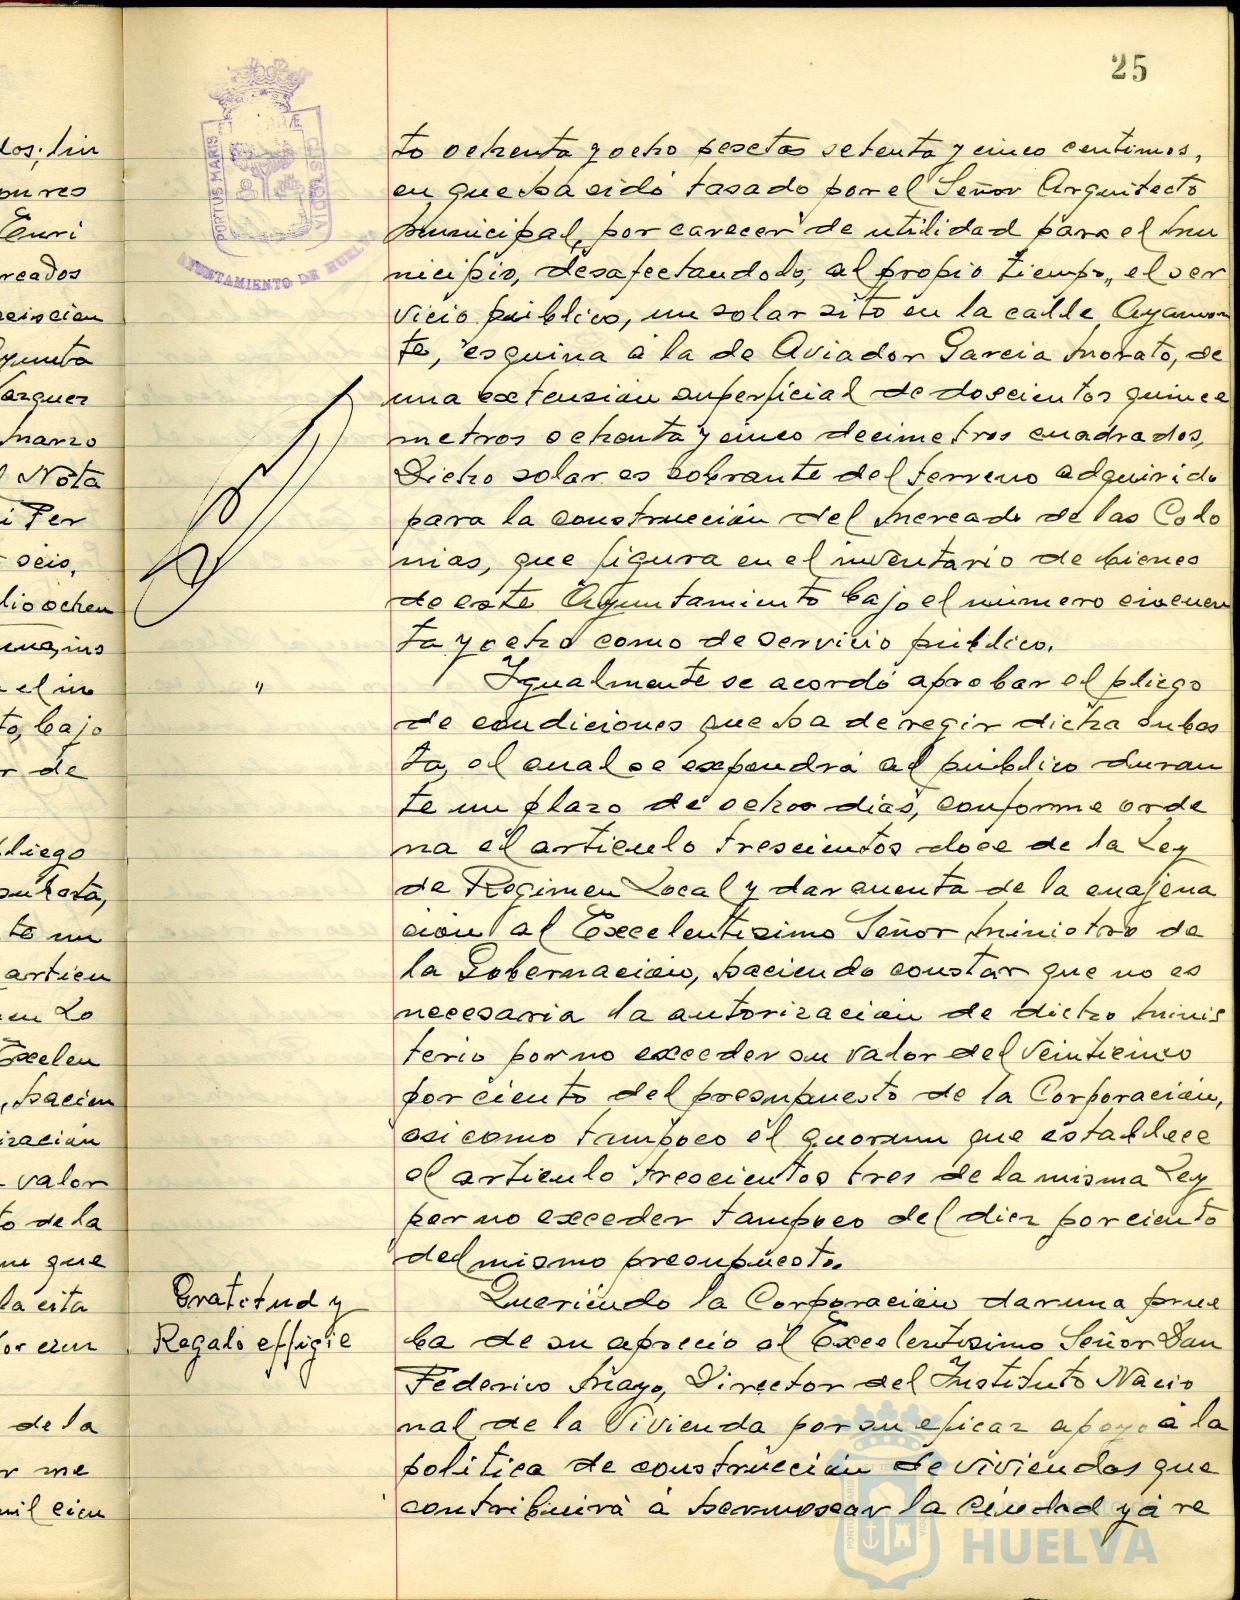 25
PORTUS MARIS
CUSTODIA
AYUNTAMIENTO DE HUELVA
to ochenta y ocho pesetas setenta y cinco centimos,
en que ha sido tasado por el Señor Arquitecto
Municipal, por carecer de utilidad para el Mu
nicipio, desafectandolo, al propio tiempo, el ser
vicio público, un solar sito en la calle Ayamon
te, esquina á la de Aviador Garcia Morato, de
una extensión superficial de doscientos quince
metros ochenta y cinco decimetros cuadrados,
Dicho solar es sobrante del terreno adquirido
para la construcción del Mercado de las Colo
nias, que figura en el inventario de bienes
de este Ayuntamiento bajo el número cincuen
ta y ocho como de servicio público.
"
Igualmente se acordó aprobar el pliego
de condiciones que ha de regir dicha subas
ta, el cual se expondrá al público duran
te un plazo de ochos dias, conforme orde
na el articulo trescientos doce de la Ley
de Regimen Local y dar cuenta de la enajena
ción al Excelentisimo Señor Ministro de
la Gobernación, haciendo constar que no es
necesaria la autorización de dicho Minis
terio por no exceder su valor del veinticinco
por ciento del presupuesto de la Corporación,
asi como tampoco el quorum que establece
el articulo trescientos tres de la misma Ley
por no exceder tampoco del diez por ciento
del mismo presupuesto.
Gratitud y
Regalo effigie
Queriendo la Corporación dar una prue
ba de su aprecio al Excelentisimo Señor Don
Federico Mayo, Director del Instituto Nacio
nal de la Vivienda por su eficaz apoyo á la
politica de construcción de viviendas que
contribuirá á hermosear la Ciudad y á re
HUELVA
dos; lin
Enri
reados
Ayunta
Vazquez
Marzo
l Nota
i Fer
seis,
lio ochen
el in
to, bajo
r de
pliego
subasta,
te un
articu
en Lo
Excelen
, hacien
ización
valor
to de la
que
la cita
de la
r me
mil cien